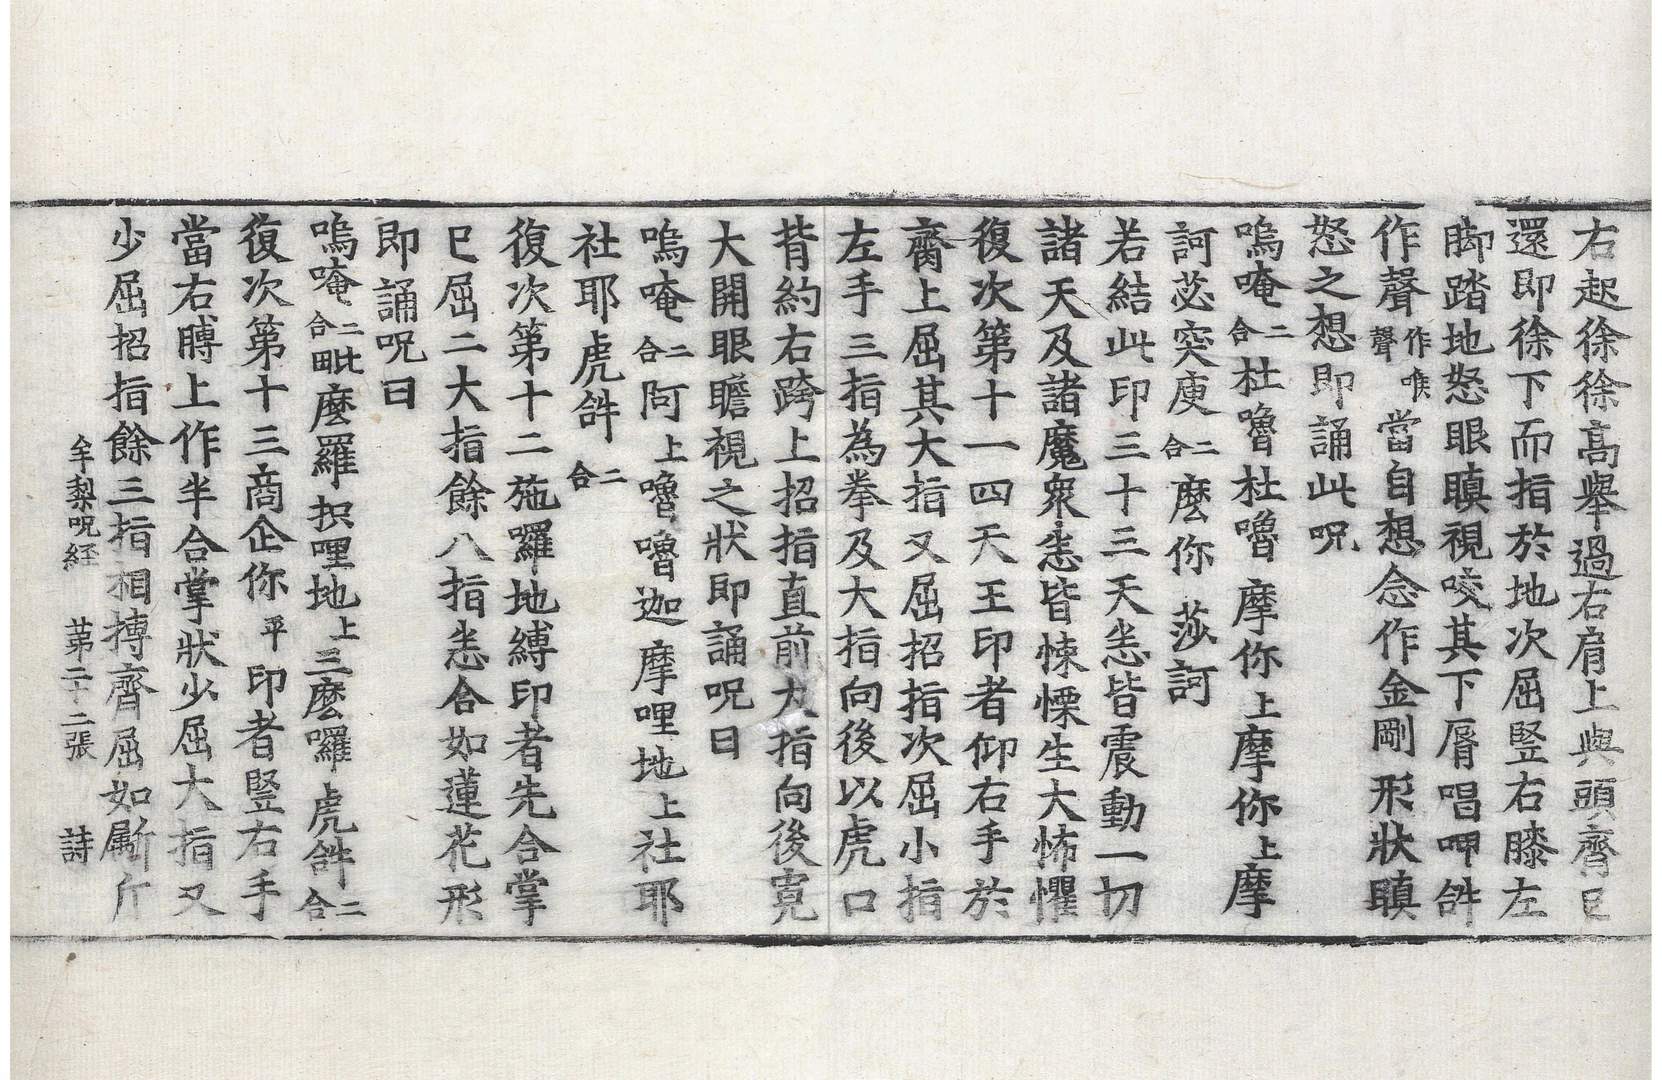 右起徐徐高舉過右肩上與頭齊已
還即徐下而指於地次屈竪右膝左
脚踏地怒眼瞋視咬其下脣唱呷𤙖
作聲作喉聲當自想念作金剛形狀瞋
怒之想即誦此呪
嗚唵二合杜嚕杜嚕摩你上摩你上摩
訶苾突㢱二合麽你莎訶
若結此印三十三天恙皆震動一切
諸天及諸魔衆恙皆悚慄生大怖懼
復次第十一四天王印者仰右手於
𦝫上屈其大指又屈招指次屈小指
左手三指為拳及大指向後以虎口
背約右跨上招指直前大指向後寬
大開眼瞻視之狀即誦呪曰
嗚唵二合阿上嚕嚕迦摩哩地上社耶
社耶虎𤙖二合
復次第十二施囉地縛印者先合掌
已屈二大指餘八指恙合如蓮花形
即誦呪曰
嗚唵二合毗麽羅抧哩地上三麽囉虎𤙖二合
復次第十三商企你平印者竪右手
當右髆上作半合掌狀少屈大指又
少屈招指餘三指相摶齊屈如斸斤
牟梨呪経 苐二十二張 詩